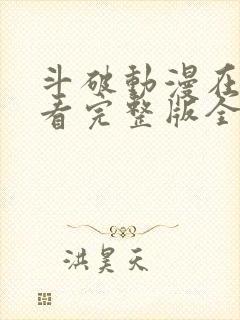 斗破動漫在
看完整版全
洪昊天